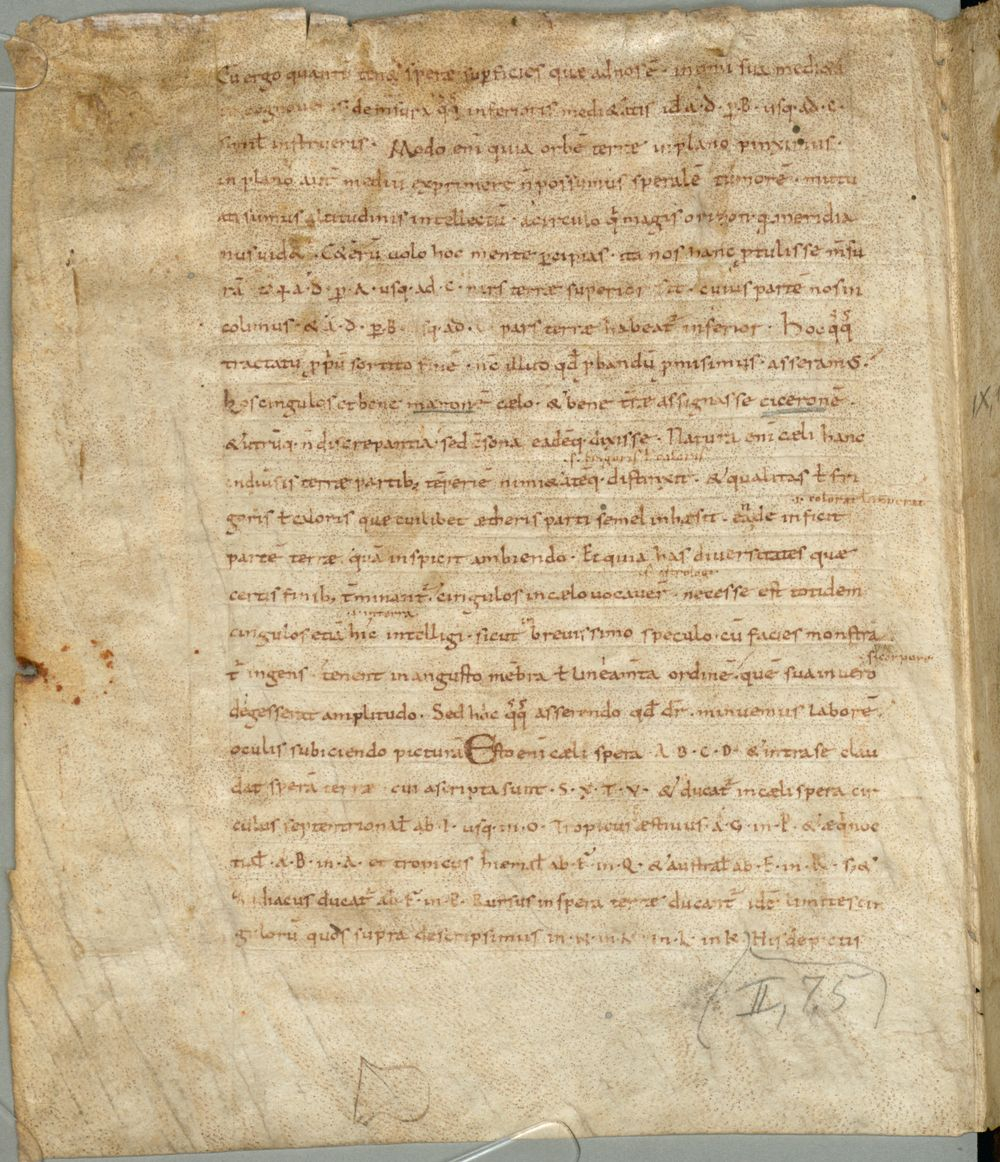 Cū ergo quantū teneat speræ supficies quæ ad nos ē · in omi sua medietate
cognoueris · de msura qq̄ inferioris medi&atis id · a · D · p · B · usq · ad · C ·
simil instrueris · Modo em̄ quia orbē terræ in plano pinximus ·
in plano aut̄ mediū exprimere n̄ possumus speralē tumorē · mutu
ati sumus altitudinis intellectū · a circulo q̄ magis orizon q̄ meridia
nus uideat · C&erū uolo hoc mente pcipias · ita nos hanc ptulisse m̄su
rā a · D · p · A · usq · ad · C · pars terræ superior sit · cuius partē nos in
colimus · & a · D · p · B · usq · ad · pars terræ habeat̄ inferior · Hoc qq̄
tractatu pprıū sortito finē · nc̄ illud qd̄ pbandū pmisimus · asseram ·
hos cingulos et bene maronē cælo · & bene t̄ræ assignasse ciceronē ·
& utrūq · n̄ discrepantia · sed c̄sona eadēq · dixisse · Natura em̄ cæli hanc
s · frigoris t̄ caloris
in diuersis terræ partib; tēperiē nimi&atēq · distinxit · & qualitas t̄ fri
goris t̄ caloris quæ cuilibet ætheris parti semel inhæsit · eande inficit
partē terræ quā inspicit ambiendo · Et quia has diuersitates quæ
s · astrologi
certis finib; t̄minant̄ · cingulos in cælo uocauer̄ · necesse est totidem
i · in terra
cingulos etiā hic intelligi · sicut brevissimo speculo · cū facies monstra
t̄ ingens · tenent in angusto mēbra t̄ lineam̄ta ordinē · quē sua in uero
s · corpore
digesserat amplitudo · Sed hoc qq̄ asserendo qd̄ dr̄ · minuemus laborē ·
oculis subiciendo picturā Esto em̄ cæli spera A B · C · D · & intra se clau
dat sperā terræ cui ascripta sunt · S · X · T · V · & ducat̄ in cæli spera cir
culus septentrional̄ ab · I · usq · in · O · Tropicus æstiuus a · G · in · P · & æq̄noc
tial̄ · a · B · in · A · et tropicus hiemal̄ ab · F · in · Q · & austral̄ ab · E · in · R · s; &
zodiacus ducat̄ ab · F · in · P · Rursus in spera terræ ducant̄ idē limites cin
gulorū quos supra descripsimus in · N · in · M · in · L · in K · His depictis
(II, 7.5)